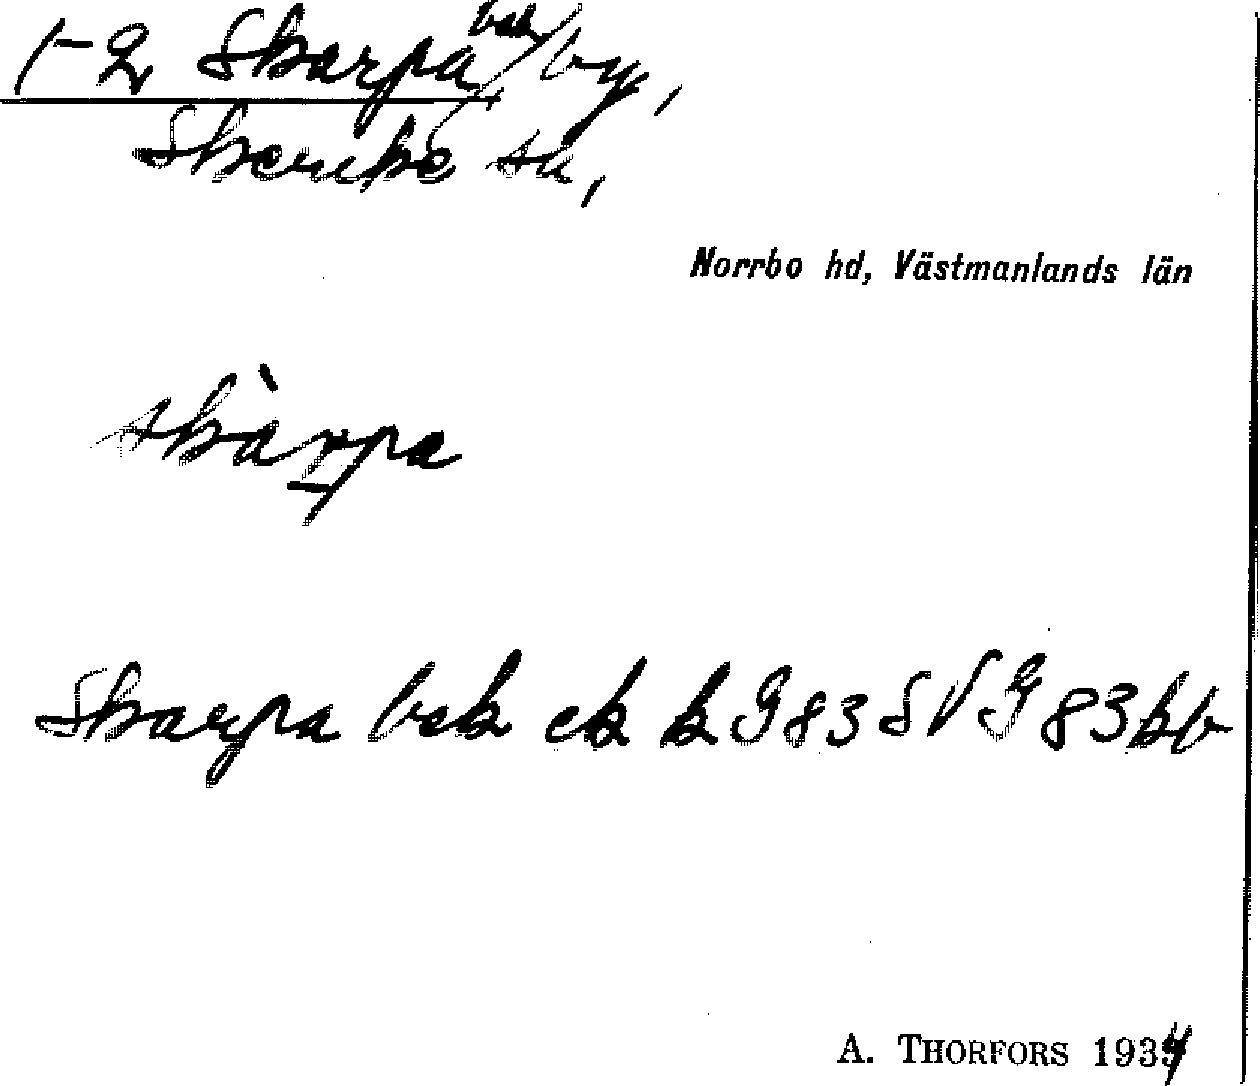 1-2 Skarpa bsk/by,
Skerike sn,
Norrbo hd, Västmanlands län
skàrpa
Skarpa bsk ek k G 83 SV G 83 kb
A. THORFORS 1934